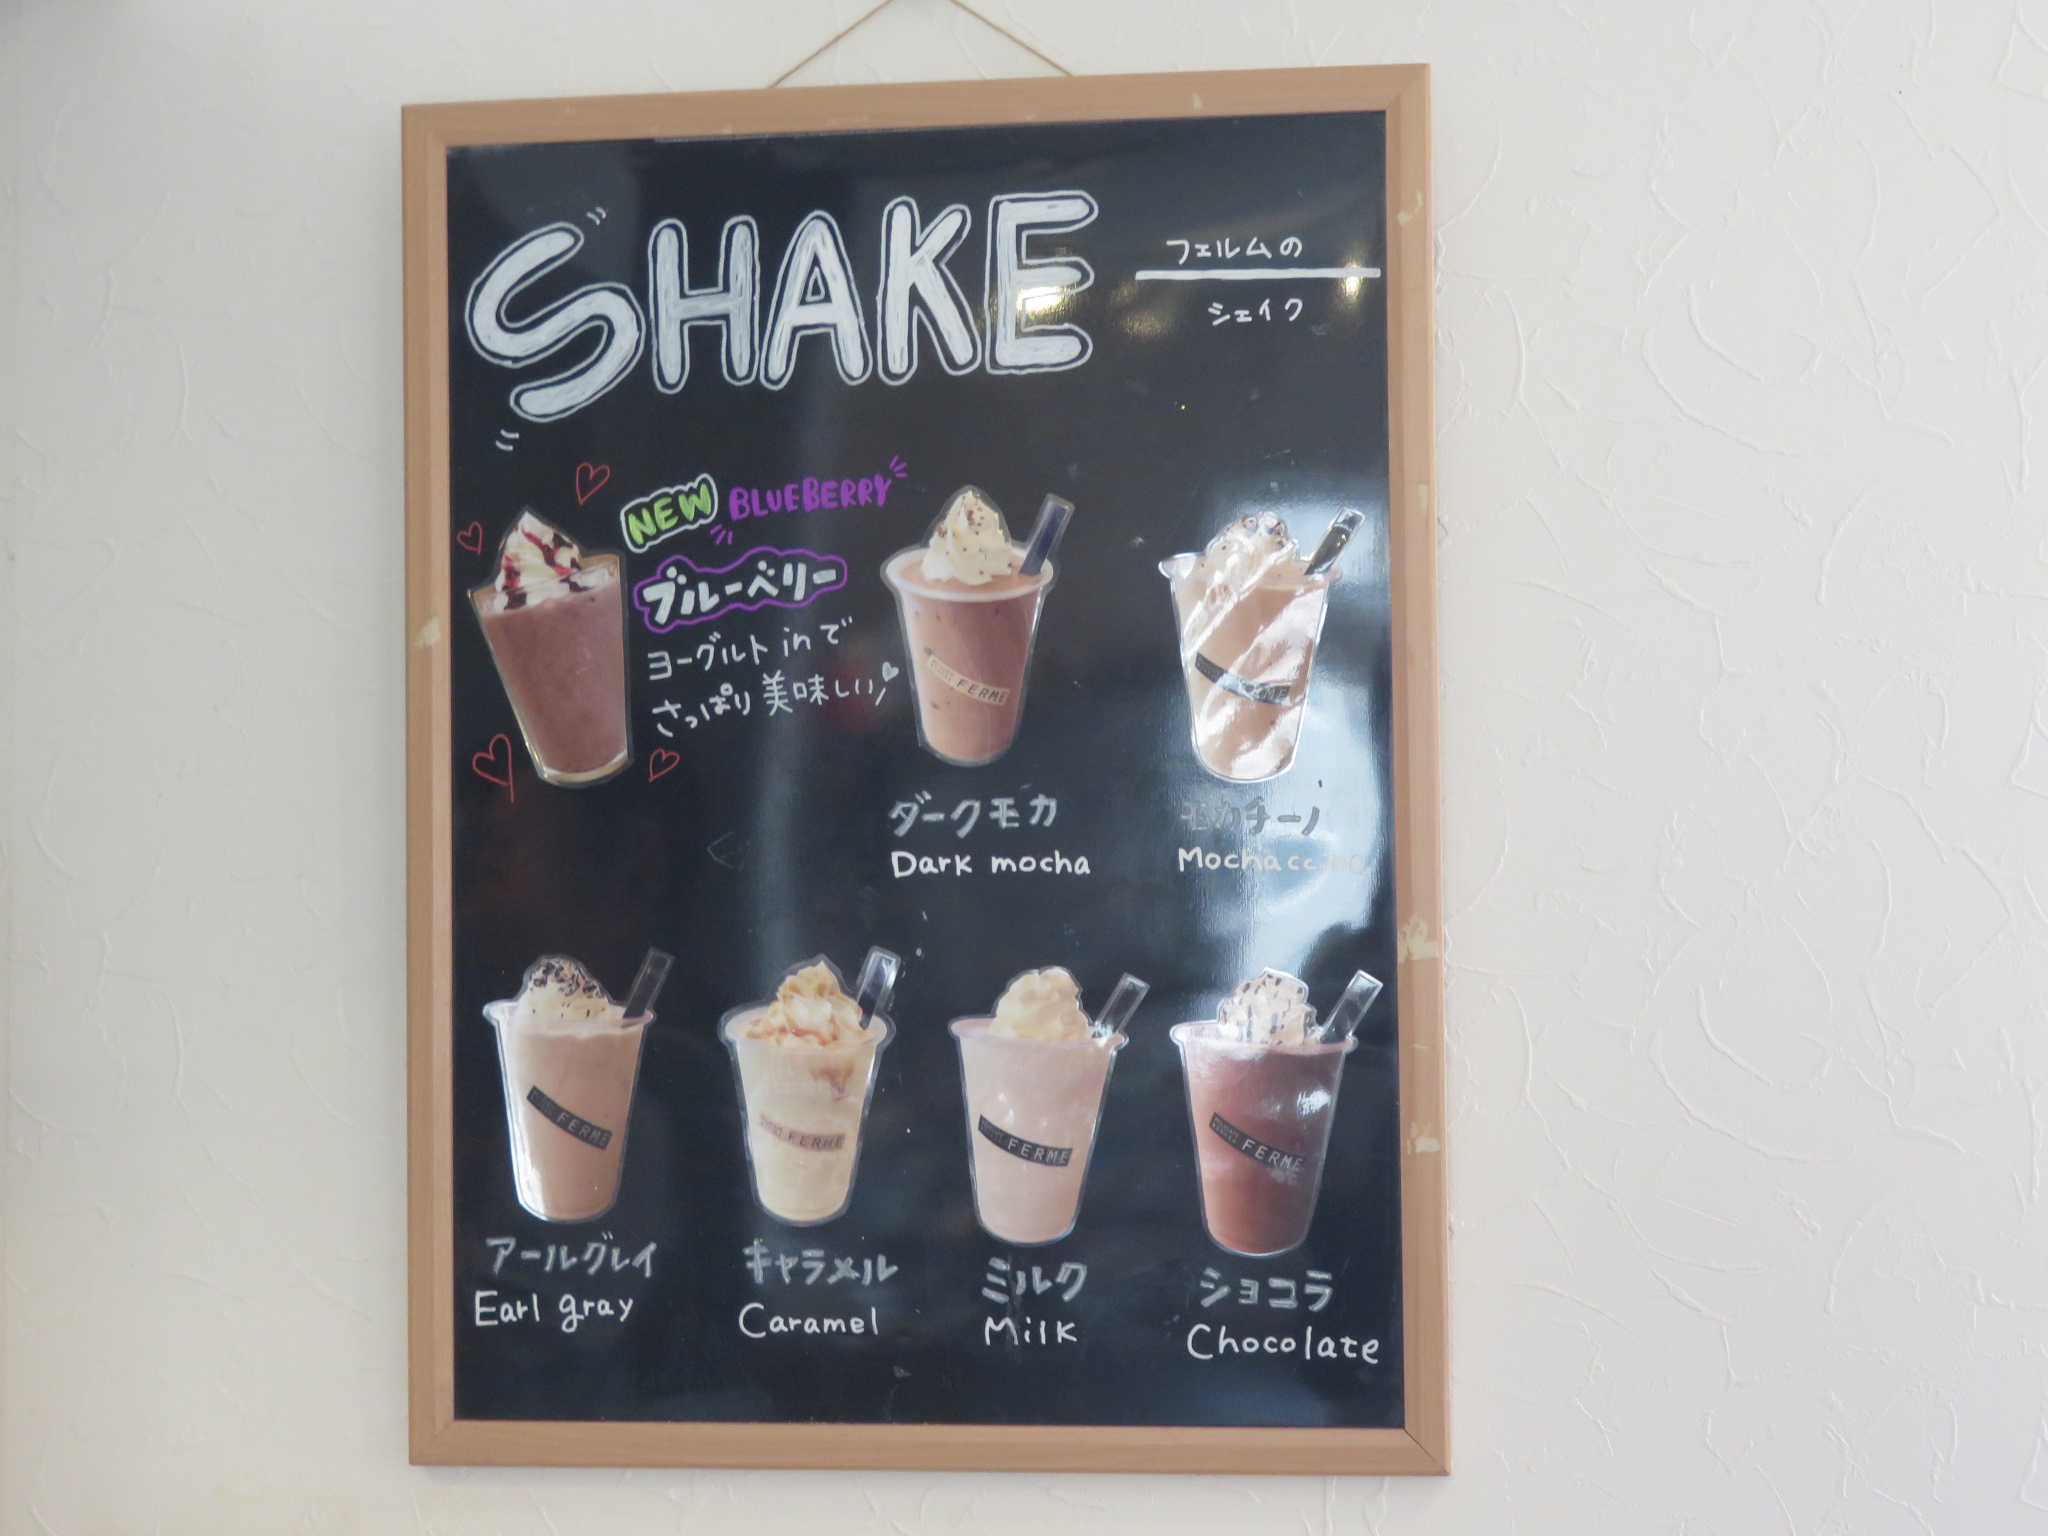 SHAKE
フェルムの
シェイク
NEW BLUEBERRY
ブルーベリー
ヨーグルト in で
さっぱり 美味しい
FERME
FERME
ダークモカ
Dark mocha
モカチーノ
Mochaccino
FERME
FERME
FERME
FERME
アールグレイ
Earl gray
キャラメル
Caramel
ミルク
Milk
ショコラ
Chocolate